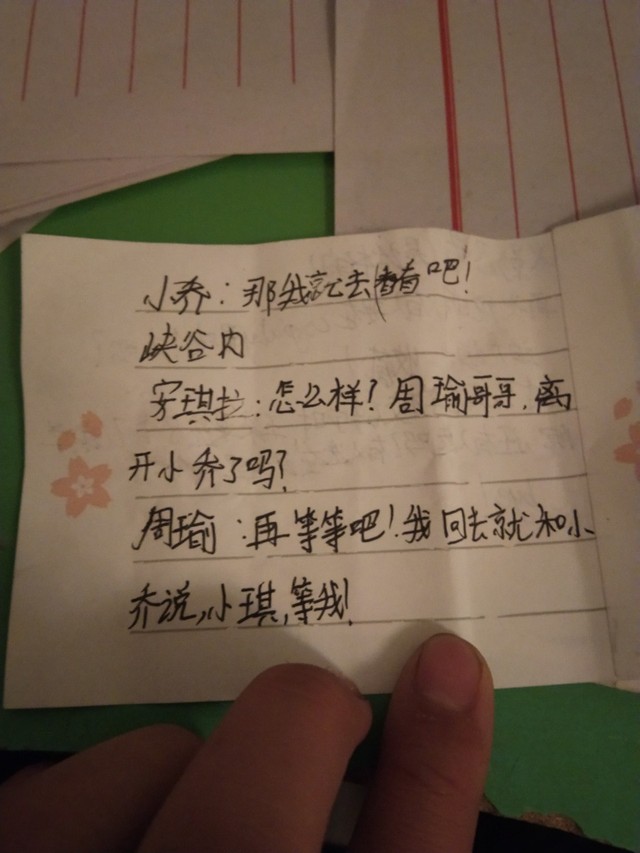 小乔:那我就去看看吧!
峡谷内
安琪拉:怎么样?周瑜哥哥,离
开小乔了吗?
周瑜:再等等吧!我回去就和小
乔说,小琪,等我!